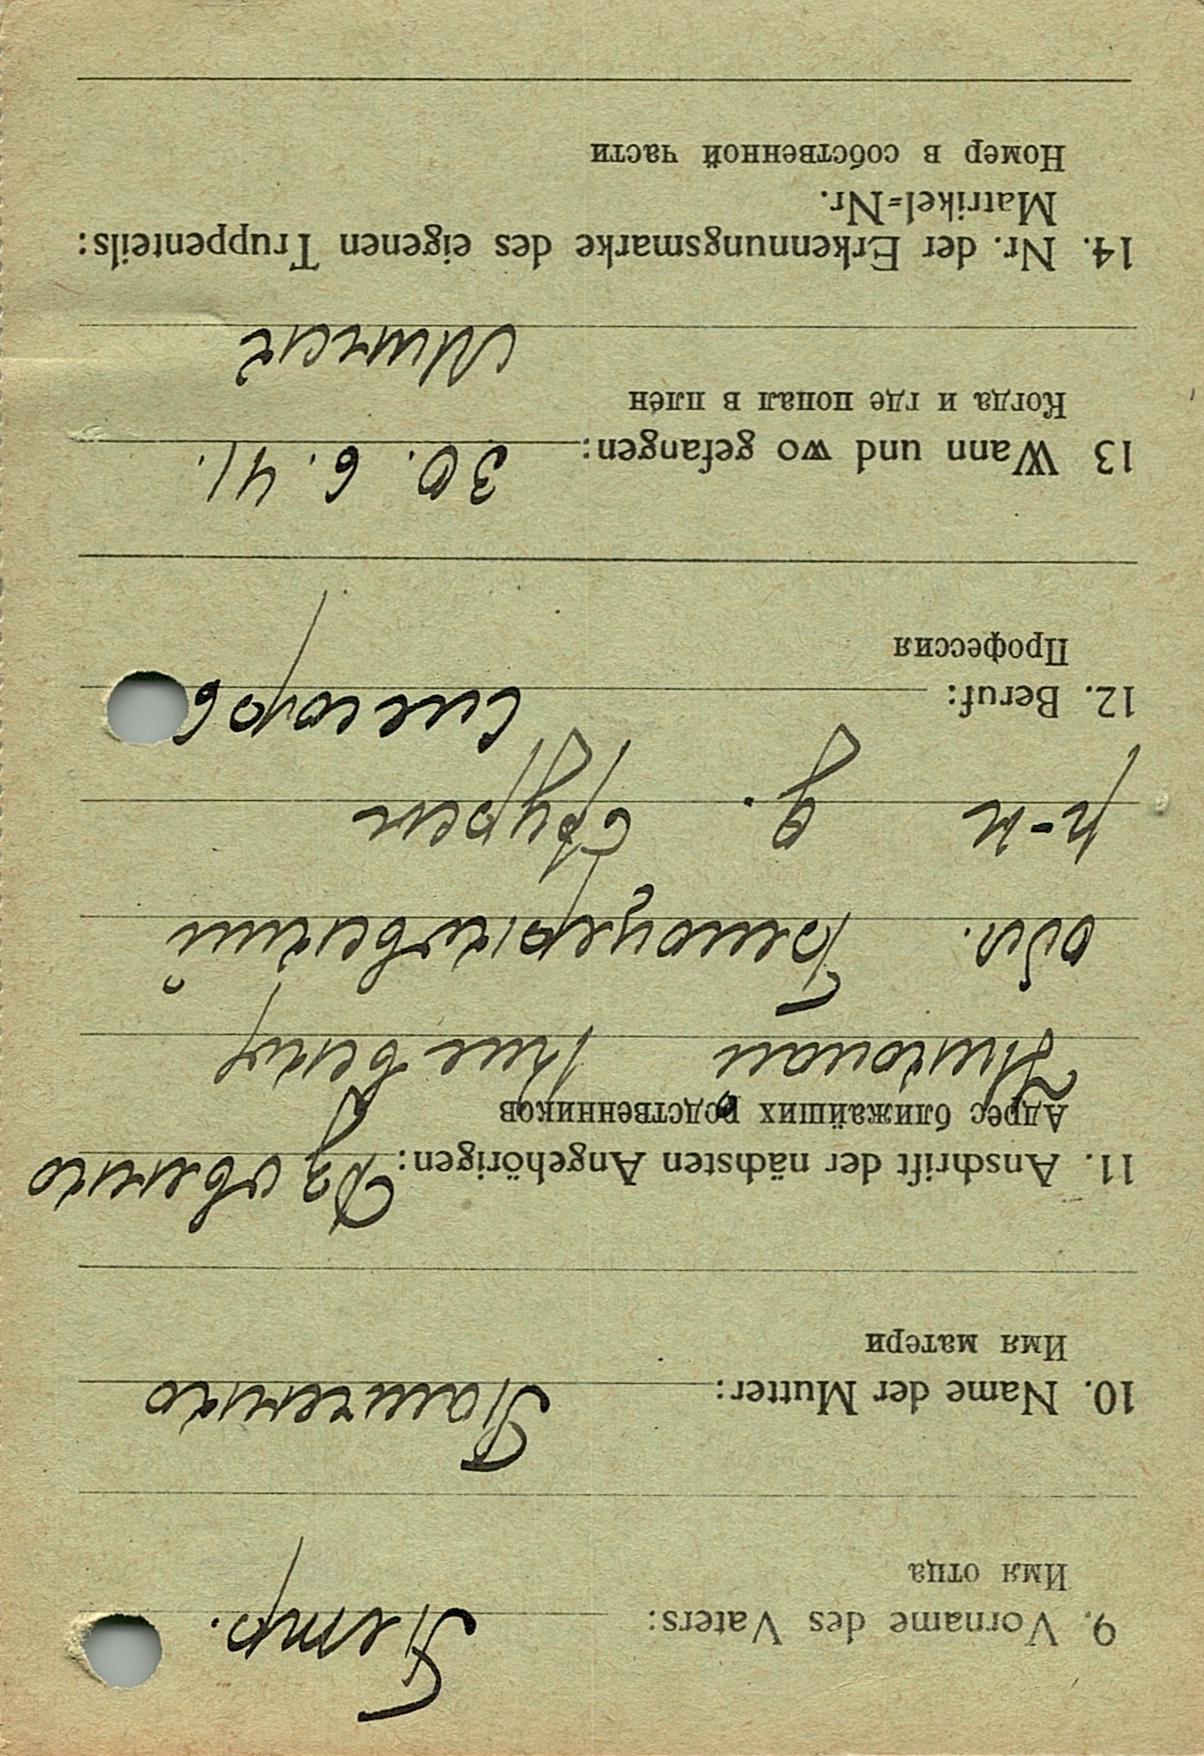 9. Vorname des Vaters: Петр.
Имя отца
10. Name der Mutter: Панченко
Имя матери
11. Anschrift der nächsten Angehörigen:
Адрес ближайших родственников
Николай
обл. Белоцерковский
р-н д.
12. Beruf: слесарь
Профессия
13 Wann und wo gefangen: 30. 6. 41.
Когда и где попал в плен
Минск
14. Nr. der Erkennungsmarke des eigenen Truppenteils:
Matrikel-Nr.
Номер в собственной части